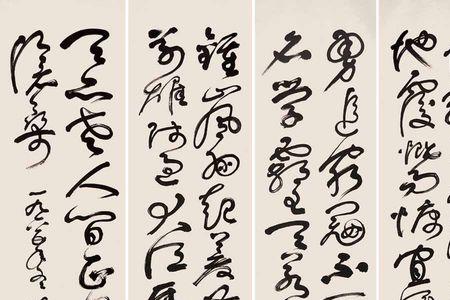 地覆慨而慷宜
勇追窮寇不
名學霸王天若
鍾山風雨起蒼
萬雄師過大江
天亦老人間正
滄桑 一九八